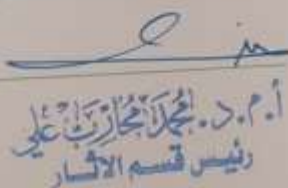 أ.م.د. محمد محارب علي
رئيس قسم الآثار